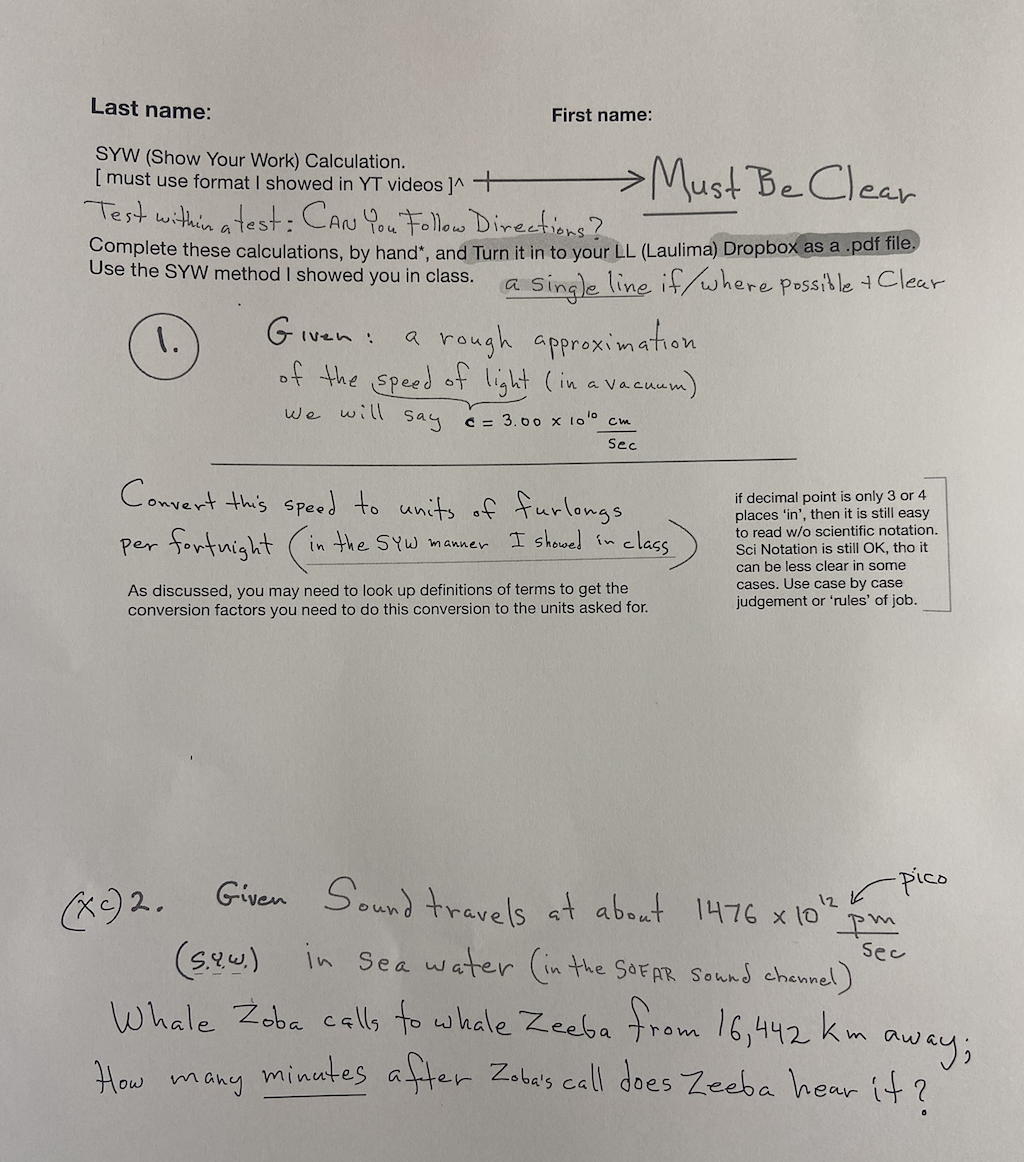 Last name: First name:
SYW (Show Your Work) Calculation.
[ must use format I showed in YT videos ]^ → Must Be Clear
Test within a test: CAN You Follow Directions?
Complete these calculations, by hand*, and Turn it in to your LL (Laulima) Dropbox as a .pdf file.
Use the SYW method I showed you in class. a single line if/where possible + Clear
1. Given: a rough approximation
of the speed of light (in a vacuum)
we will say c = 3.00 x 10¹⁰ cm
sec
Convert this speed to units of furlongs
per fortnight (in the SYW manner I showed in class)
As discussed, you may need to look up definitions of terms to get the
conversion factors you need to do this conversion to the units asked for.
if decimal point is only 3 or 4
places 'in', then it is still easy
to read w/o scientific notation.
Sci Notation is still OK, tho it
can be less clear in some
cases. Use case by case
judgement or 'rules' of job.
pico
(xc) 2. Given Sound travels at about 1476 x 10¹² pm
sec
(S.Y.W.) in sea water (in the SOFAR sound channel)
Whale Zoba calls to whale Zeeba from 16,442 km away;
How many minutes after Zoba's call does Zeeba hear it?